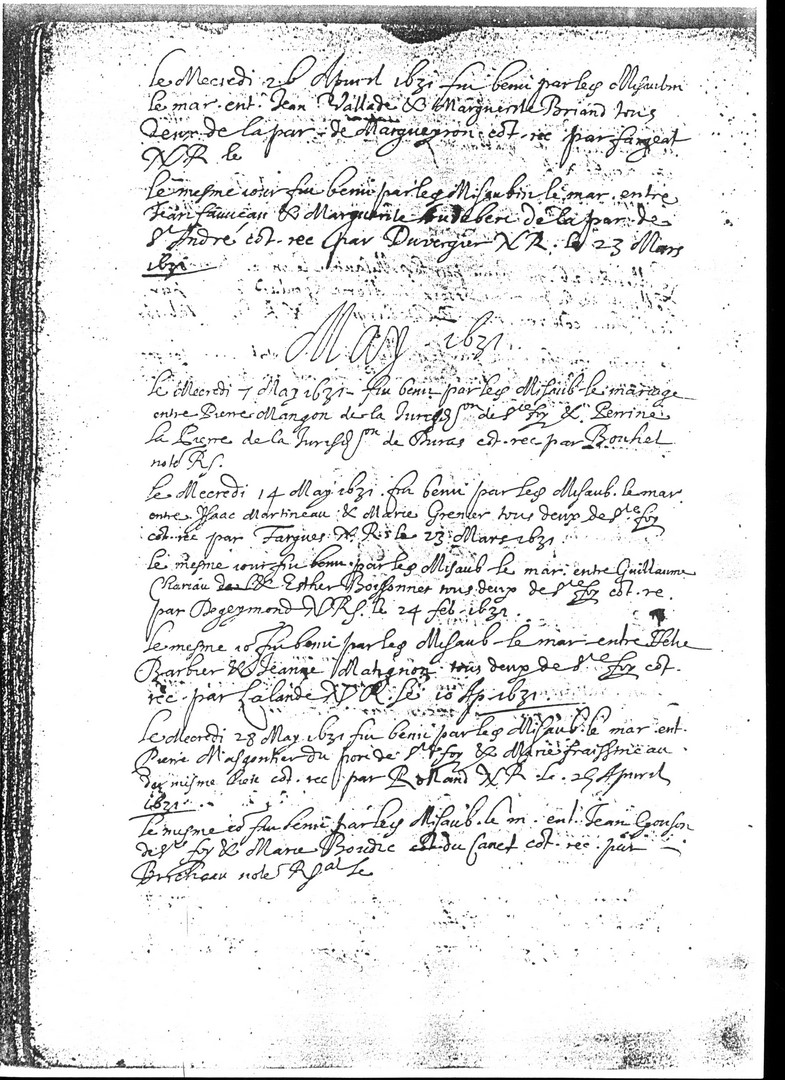 le Mecredi Apvril 1631 fut beni par le Sr Misaubin
le mar. ent. Jean Vallade & Marguerite Briand tous
deux de la par. de Margueyron cot. rec par fargeat
N R le
le mesme iour fut beni par le Sr Misaubin le mar. entre
Jean fauveau & Marguerite de la par. de
St André cot. rec par Duvergier N R. le 23 Mars
1631
May 1631
le Mecredi 7 May 1631 fut beni par le Sr Misaub. le mariage
entre Pierre Mangon de la Jurisdon de Ste foy & Perrine
la Pierre de la Jurisdon de Duras cot. rec par Bouhet
note Rs.
le Mecredi 14 May 1631 fut beni par le Sr Misaub. le mar.
entre Isaac Martineau & Marie Grenier tous deux de Ste foy
cot. rec par Fargues N. R. le 23 Mars 1631
le mesme iour fut beni par le Sr Misaub le mar. entre Guillaume
Chariau Esther Boissonnet tous deux de Ste foy cot. re
par Degeymond N Rs. le 24 feb 1631.
le mesme io fut beni par le Sr Misaub le mar entre Helie
Barbier & Jeanne Matignon tous deux de Ste foy cot.
rec par Lalande N R. le 10 Ap 1631
le Mecredi 28 May 1631 fut beni par le Sr Misaub. le mar. ent.
Pierre du de Ste foy & Marie fraissineau
du mesme lieu cot. rec par Rolland N R. le 25 Apvril
1631.
le mesme io fut beni par le Sr Misaub. le m. ent. Jean
de Ste foy & Marie Boudie du Canet cot. rec. par
note Rgal le